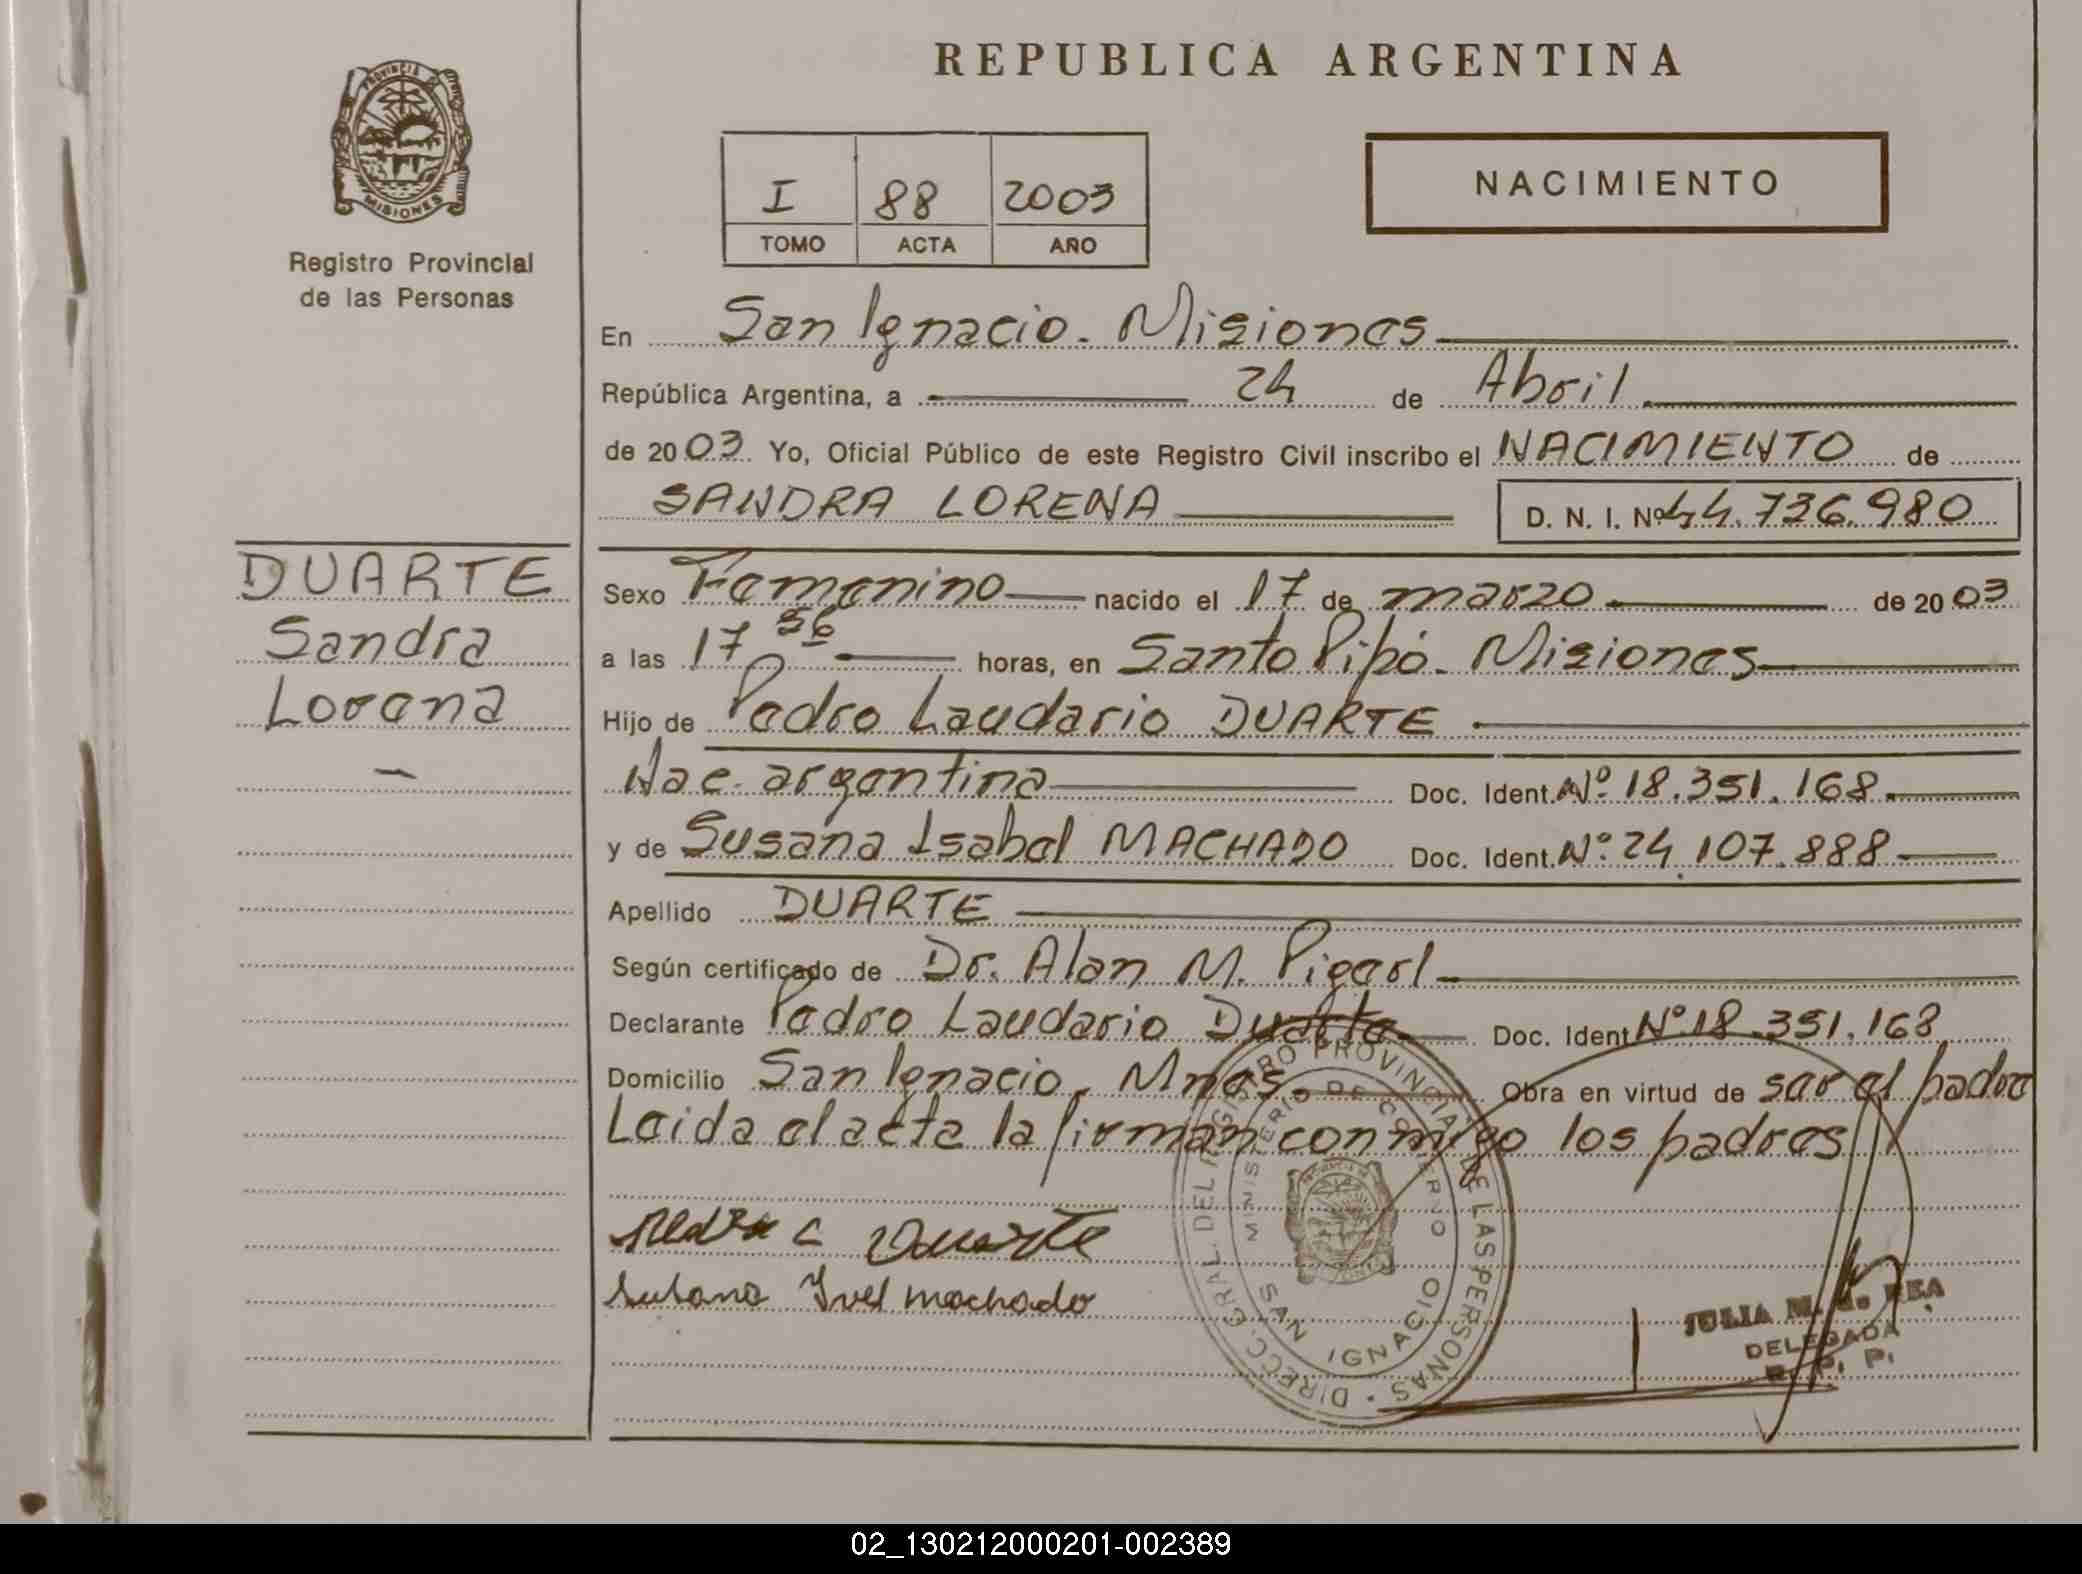 REPUBLICA ARGENTINA
PROVINCIA DE
MISIONES
Registro Provincial
de las Personas
I 88 2003
TOMO ACTA AÑO
NACIMIENTO
En San Ignacio. Misiones
República Argentina, a 24 de Abril
de 2003. Yo, Oficial Público de este Registro Civil inscribo el NACIMIENTO de
SANDRA LORENA D. N. I. Nº 44.736.980
DUARTE
Sandra
Lorena
Sexo Femenino nacido el 17 de marzo de 2003
a las 17 36 horas, en Santo Pipó. Misiones
Hijo de Pedro Laudario DUARTE
Nac. argentina Doc. Ident. Nº 18.351.168
y de Susana Isabel MACHADO Doc. Ident. Nº 24.107.888
Apellido DUARTE
Según certificado de Dr. Alan M.
Declarante Pedro Laudario Duarte Doc. Ident Nº 18.351.168
Domicilio San Ignacio, Mnes. Obra en virtud de ser el padre
Leida el acta la firman conmigo los padres
L Duarte
Susana machado
DIRECC. GRAL. DEL REGISTRO PROVINCIAL DE LAS PERSONAS
MINISTERIO DE GOBIERNO
SAN IGNACIO
JULIA M. REA
DELEGADA
R. P. P.
02_130212000201-002389